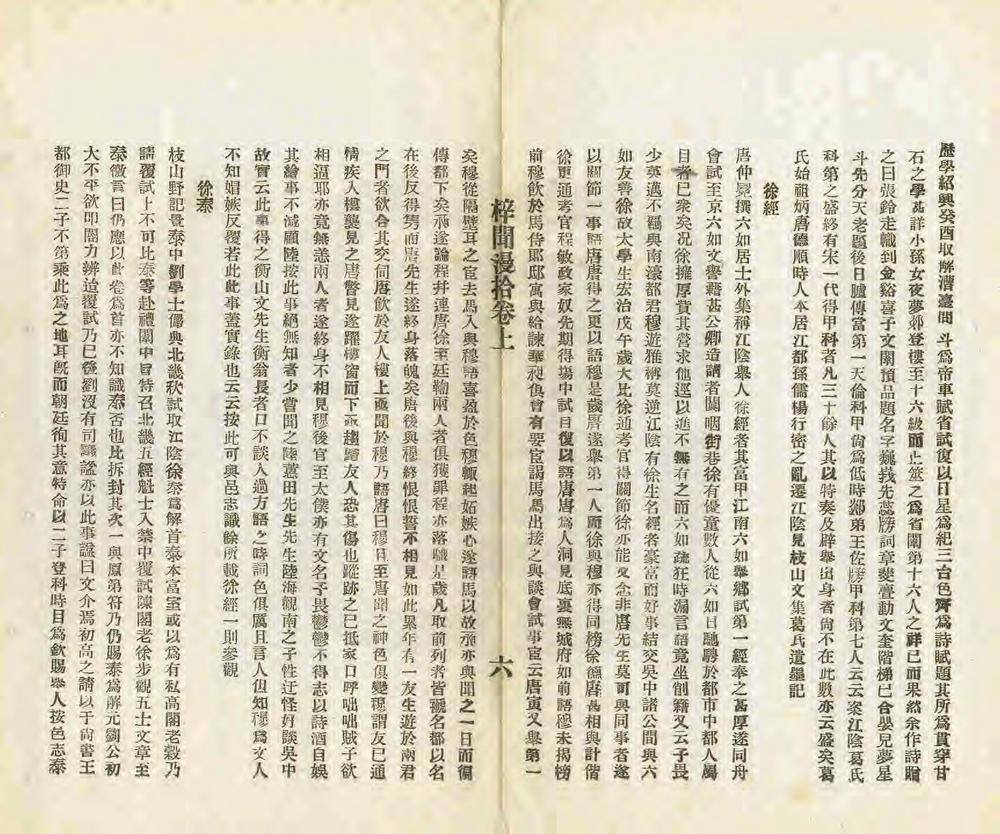 歷學紹興癸酉取解漕臺問 斗爲帝車賦省試復以日星爲紀三台色齊爲詩賦題其所爲貫穿甘
石之學甚詳小孫女夜夢郯登樓至十六級而止筮之爲省闈第十六人之祥已而果然余作詩贈
之曰張鈴走幟到金谿喜子文闈預品題名字巍峩先蕊牓詞章夔疊動文奎階梯巳合嬰兒夢星
斗先分天老題後日臚傳當第一天倫科甲尙爲低時郯弟王佐牓甲科第七人云云案江陰葛氏
科第之盛終有宋一代得甲科者凡三十餘人其以特奏及辟舉出身者尙不在此數亦云盛矣葛
氏始祖炳唐德順時人本居江都孫儒楊行密之亂遷江陰見枝山文集葛氏遺龜記
徐經
唐仲冕撰六如居士外集稱江陰舉人徐經者其富甲江南六如舉鄉試第一經奉之甚厚遂同舟
會試至京六如文譽藉甚公卿造請者闐咽街巷徐有優童數人從六如日馳騁於都市中都人屬
目者已衆矣況徐擁厚貲其營求他逕以進不無有之而六如疏狂時漏言語竟坐削籍又云子畏
少英邁不羈與南濠都君穆遊雅稱莫逆江陰有徐生名經者豪富而好事結交吳中諸公間與六
如友善徐故太學生宏治戊午歲大比徐通考官得關節徐亦能文念非唐先生莫可與同事者遂
以關節一事語唐唐得之更以語穆是歲唐遂舉第一人而徐與穆亦得同榜徐德唐甚相與計偕
徐更通考官程敏政家奴先期得場中試目復以語唐唐爲人洞見底裏無城府如前語穆未揭榜
前穆飲於馬侍郎邸寓與給諫華昶俱會有要宦謁馬馬出接之與談會試事宦云唐寅又舉第一
梓聞漫拾卷上
六
矣穆從隔壁耳之宦去馬入與穆語喜盈於色穆輒起妬嫉心遂語馬以故昶亦與聞之一日而徧
傳都下矣昶遂論程幷連唐徐至廷鞫兩人者俱獲罪程亦落職是歲凡取前列者皆褫名都以名
在後反得雋而唐先生遂終身落魄矣唐後與穆終恨恨誓不相見如此累年有一友生遊於兩君
之門者欲合其交伺唐飲於友人樓上亟聞於穆乃語唐曰穆且至唐聞之神色俱變穆謂友已通
情疾入樓襲見之唐瞥見遂躍樓窗而下亟趨歸友人恐其傷也蹤跡之已抵家口呼咄咄賊子欲
相逼耶亦竟無恙兩人者遂終身不相見穆後官至太僕亦有文名子畏鬱鬱不得志以詩酒自娛
其繪事不減顧陸按此事絕無知者少嘗聞之陸蕙田先生先生陸海觀南之子性迂怪好談吳中
故實云此事得之衡山文先生衡翁長者口不談人過方語之時詞色俱厲且言人但知穆爲文人
不知媢嫉反覆若此此事蓋實錄也云云按此可與邑志識餘所載徐經一則參觀
徐泰
枝山野記景泰中劉學士儼典北畿秋試取江陰徐泰爲解首泰本富室或以爲有私高閣老穀乃
請覆試上不可比泰等赴禮闈中旨特召北畿五經魁士入禁中覆試陳閣老徐步觀五士文章至
泰微言曰仍應以此卷爲首亦不知識泰否也比拆封其次一與原第符乃仍賜泰爲解元劉公初
大不平欲叩閽力辨迨覆試乃已後劉沒有司議諡亦以此事諡曰文介焉初高之請以于尙書王
都御史二子不第乘此爲之地耳旣而朝廷徇其意特命以二子登科時目爲欽賜舉人按邑志泰